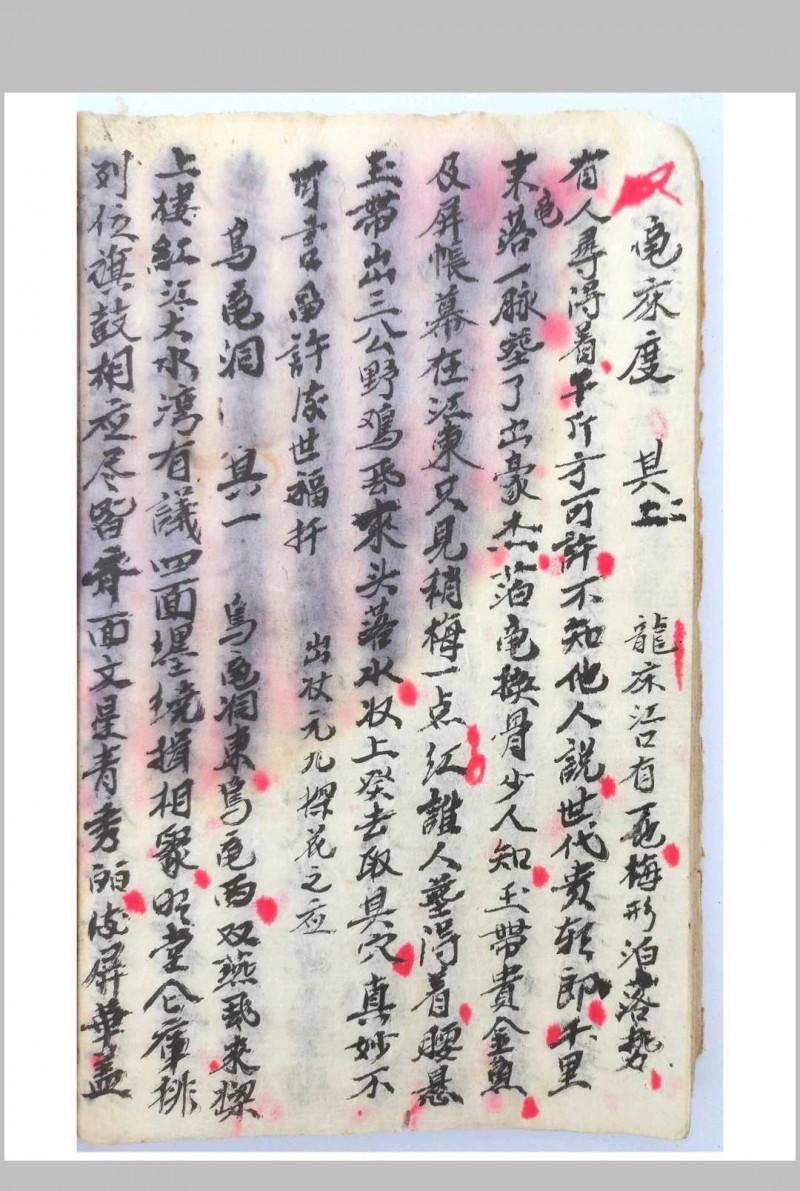 又 龟床度 其 龍床江口有龟梅形泊落勢
有人尋得着千斤方可許不知他人説世代贵朝郎千里
来落一脉塟了出豪杰落龟换骨少人知玉帶貴金魚
及屏帳幕在江東只見稍梅一点红誰人塟得着腰悬
玉帶出三公野鸡飛來头落水 上癸去取其穴真妙不
可言畄許後世福扦 出 元九探花之应
烏龟洞 其一 烏龟洞東烏龟西双燕飛來探
上樓紅江大水湾有議四面 繞揖相聚明堂仓庫排
列位旗鼓相应尽皆齐面文星青秀 後屏華盖